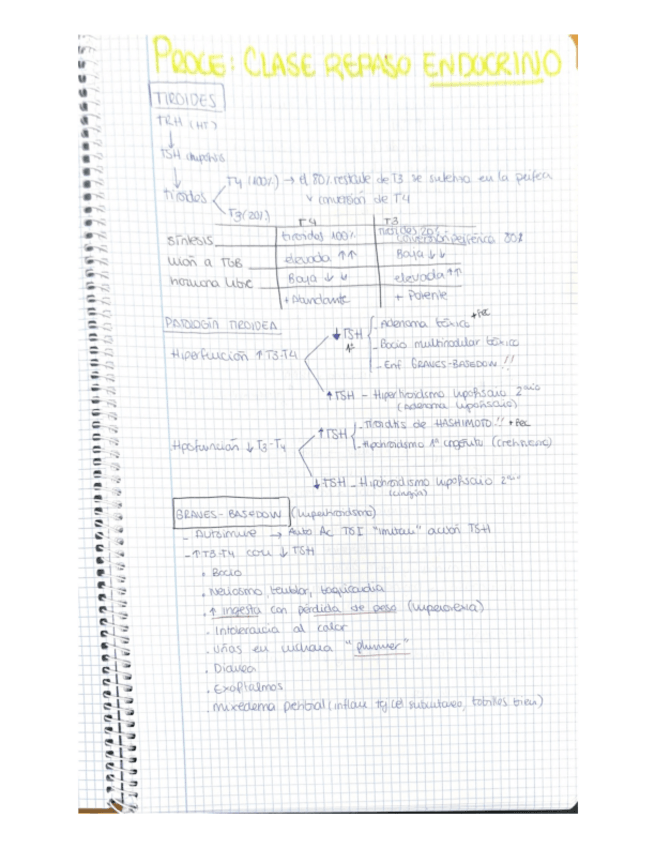 PROCE: CLASE REPASO ENDOCRINO
TIROIDES
TRH (HT)
TSH hipófisis
tiroides
T4 (100%) → el 80% restante de T3 se sintetiza en la perifera
x conversión de T4
T3 (20%)
T4 T3
síntesis tiroides 100% tiroides 20% conversión periférica 80%
unión a TGB elevada ↑↑ Baja ↓↓
hormona libre Baja ↓↓ elevada ↑↑
+ Abundante + Potente
PATOLOGÍA TIROIDEA
Hiperfunción ↑ T3-T4
↓ TSH 1º
- Adenoma tóxico + FREC
- Bocio multinodular tóxico
- Enf GRAVES-BASEDOW !!
↑ TSH - Hipertiroidismo hipofisario 2ario
(adenoma hipofisario)
Hipofunción ↓ T3-T4
↑ TSH
- Tiroiditis de HASHIMOTO !! + FREC
- Hipotiroidismo 1º congénito (cretinismo)
↓ TSH - Hipotiroidismo hipofisario 2ario
(cirugía)
GRAVES-BASEDOW (hipertiroidismo)
- Autoinmune → Auto Ac TSI "imitan" acción TSH
- ↑ T3-T4 con ↓ TSH
. Bocio
. Nerviosismo, temblor, taquicardia
. ↑ ingesta con pérdida de peso (hiperorexia)
. Intolerancia al calor
. Uñas en cuchara "plummer"
. Diarrea
. Exoftalmos
. Mixedema peritibial (inflam tj cel subcutáneo, tobillos)